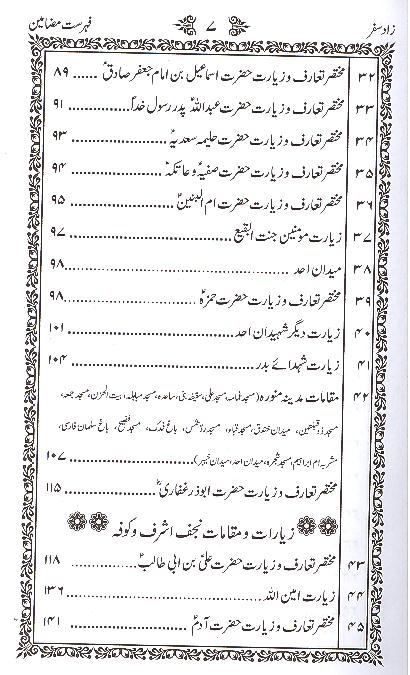 زاد سفر ۷ فہرست مضامین
۳۲ مختصر تعارف و زیارت حضرت اسماعیل بن امام جعفر صادقؑ ...... ۸۹
۳۳ مختصر تعارف و زیارت حضرت عبداللہؑ پدر رسول خداؐ ...... ۹۱
۳۴ مختصر تعارف و زیارت حضرت حلیمہ سعدیہؑ ...... ۹۳
۳۵ مختصر تعارف و زیارت حضرت صفیہؑ و عاتکہؑ ...... ۹۴
۳۶ مختصر تعارف و زیارت حضرت ام البنینؑ ...... ۹۵
۳۷ زیارت مومنین جنت البقیع ...... ۹۷
۳۸ میدان احد ...... ۹۸
۳۹ مختصر تعارف و زیارت حضرت حمزہؑ ...... ۹۸
۴۰ زیارت دیگر شہیدان احد ...... ۱۰۱
۴۱ زیارت شہدائے بدر ...... ۱۰۴
۴۲ مقامات مدینہ منورہ (مسجد غمامہ، مسجد علی، سقیفہ بنی ساعدہ، مسجد مباہلہ، بیت الحزن، مسجد جمعہ،
مسجد ذوقبلتین، میدان خندق، مسجد قباء، مسجد ردّ شمس، باغ فدک، مسجد فضیخ، باغ سلمان فارسی،
مشربہ ام ابراہیم، مسجد شجرہ، میدان احد، میدان خیبر) ...... ۱۰۷
مختصر تعارف و زیارت حضرت ابوذر غفاریؓ ...... ۱۱۵
زیارات و مقامات نجف اشرف و کوفہ
۴۳ مختصر تعارف و زیارت حضرت علیؑ بن ابی طالبؑ ...... ۱۱۸
۴۴ زیارت امین اللہ ...... ۱۳۶
۴۵ مختصر تعارف و زیارت حضرت آدمؑ ...... ۱۴۱